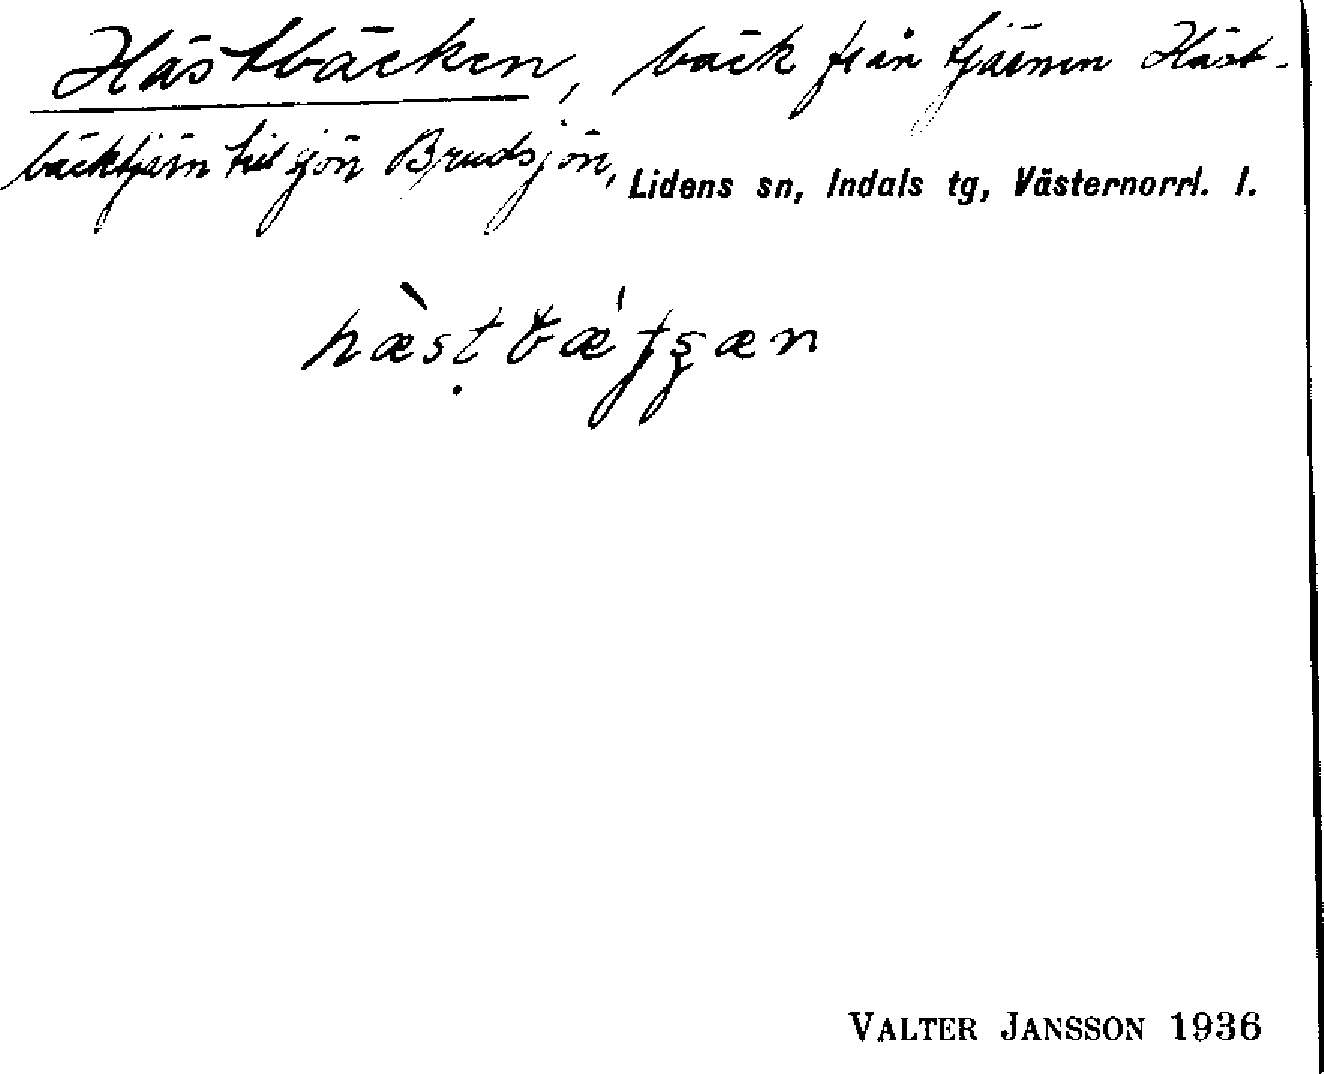 Hästbäcken, bäck från tjärnen Häst-
bäcktjärn till sjön Brudsjön, Lidens sn, Indals tg, Västernorrl. l.
VALTER JANSSON 1936